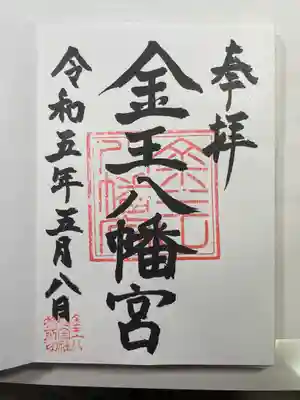 奉拝
金王八幡宮
令和五年五月八日